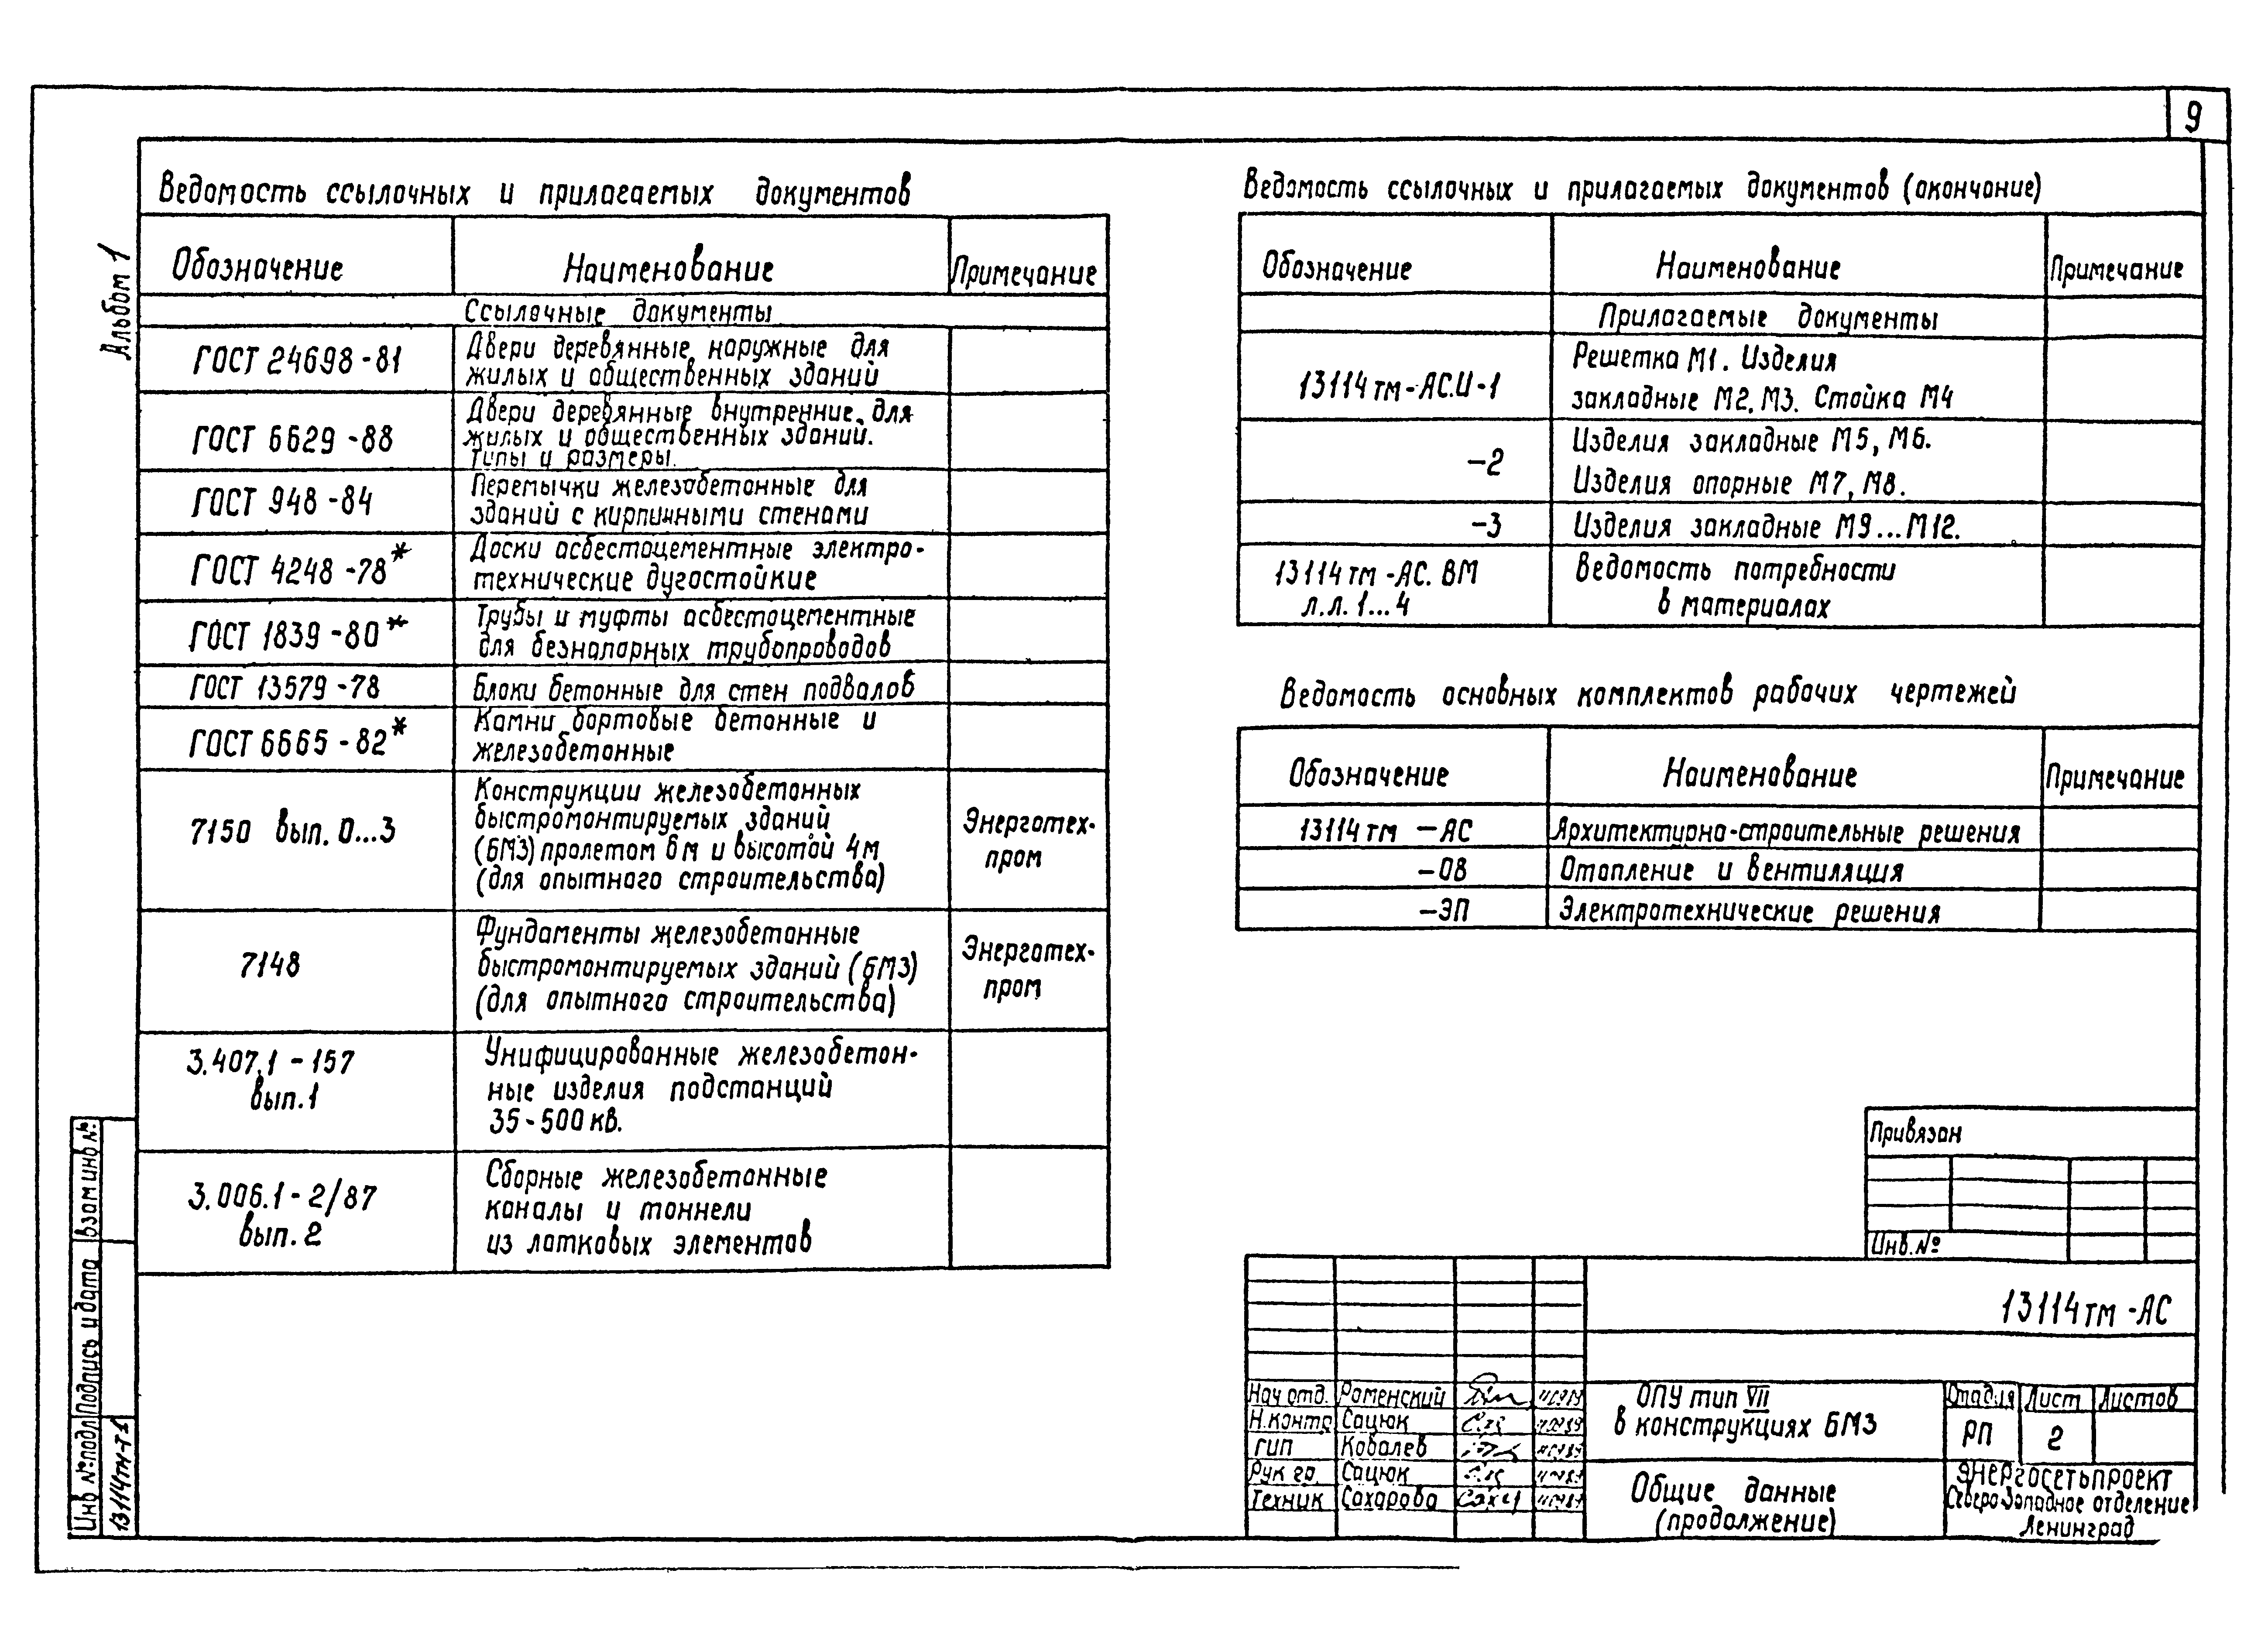 9
Альбом 1
Ведомость ссылочных и прилагаемых документов
Обозначение
Наименование
Примечание
Ссылочные документы
ГОСТ 24698-81
Двери деревянные наружные для
жилых и общественных зданий
ГОСТ 6629-88
Двери деревянные внутренние для
жилых и общественных зданий.
Типы и размеры.
ГОСТ 948-84
Перемычки железобетонные для
зданий с кирпичными стенами
ГОСТ 4248-78*
Доски асбестоцементные электро-
технические дугостойкие
ГОСТ 1839-80*
Трубы и муфты асбестоцементные
для безнапорных трубопроводов
ГОСТ 13579-78
Блоки бетонные для стен подвалов
ГОСТ 6665-82*
Камни бортовые бетонные и
железобетонные
7150 вып. 0...3
Конструкции железобетонных
быстромонтируемых зданий
(БМЗ) пролетом 6м и высотой 4м
(для опытного строительства)
Энерготех-
пром
7148
Фундаменты железобетонные
быстромонтируемых зданий (БМЗ)
(для опытного строительства)
Энерготех-
пром
3.407.1-157
вып.1
Унифицированные железобетон-
ные изделия подстанций
35-500кв.
3.006.1-2/87
вып. 2
Сборные железобетонные
каналы и тоннели
из лотковых элементов
Ведомость ссылочных и прилагаемых документов (окончание)
Обозначение
Наименование
Примечание
Прилагаемые документы
13114тм-АС.И-1
Решетка М1. Изделия
закладные М2, М3. Стойка М4
-2
Изделия закладные М5, М6.
Изделия опорные М7, М8.
-3
Изделия закладные М9...М12.
13114тм-АС. ВМ
л.л. 1...4
Ведомость потребности
в материалах
Ведомость основных комплектов рабочих чертежей
Обозначение
Наименование
Примечание
13114тм -АС
Архитектурно-строительные решения
-ОВ
Отопление и вентиляция
-ЭП
Электротехнические решения
Привязан
Инв.№
13114тм-АС
Нач отд. Роменский
Н.контр Сацюк
ГИП Ковалев
Рук гр. Сацюк
Техник Сахарова
ОПУ тип VII
в конструкциях БМЗ
Стадия Лист Листов
РП 2
Общие данные
(продолжение)
ЭНЕРГОСЕТЬПРОЕКТ
Северо Западное отделение
Ленинград
Взам инв №
Подпись и дата
Инв №подл
13114тм-т1